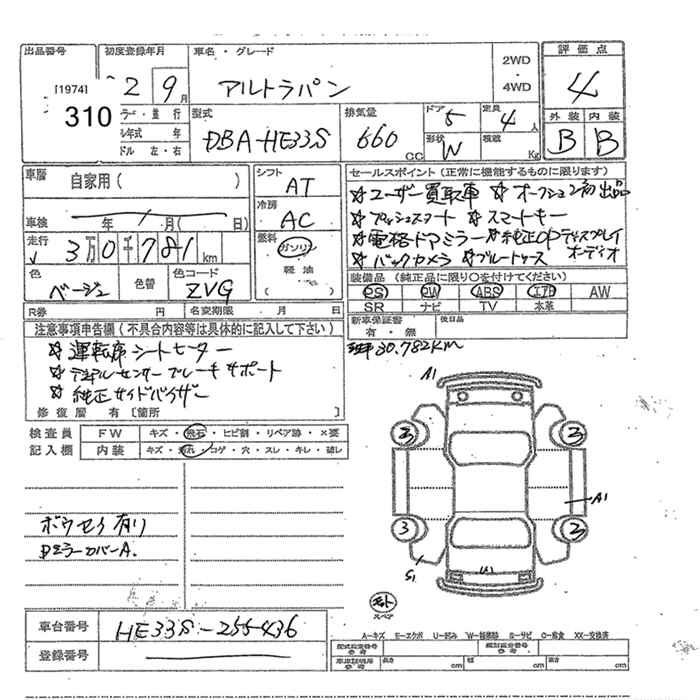 出品番号 初度登録年月 車名・グレード 評価点
[1974]
310
2 9月 アルトラパン 2WD ・ 4WD 4
外装 内装
B B
型式 排気量 ドア 定員
DBA-HE33S 660 CC 5 4人
形状 積載
W Kg
車歴 自家用( )
シフト AT
冷房 AC
燃料 ガソリン
軽油
車検 年 月( 日)
走行 3万0千781km
色 色替 色コード
ベージュ ZVG
R券 円 名変期限 月 日
セールスポイント(正常に機能するものに限ります)
☆ユーザー買取車 ☆オークション初出品
☆プッシュスタート ☆スマートキー
☆電格ドアミラー ☆純正OPディスプレイ
☆バックカメラ ☆ブルートゥース オーディオ
装備品(純正品に限り○を付けてください)
PS PW ABS エアB AW
SR ナビ TV 本革
新車保証書 後日品
有・無
注意事項申告欄(不具合内容等は具体的に記入して下さい)
☆運転席シートヒーター
☆デュアルセンサーブレーキサポート
☆純正サイドバイザー
修復歴 有[箇所 ]
30.782KM
検査員 FW キズ・飛石・ヒビ割・リペア跡・×要
記入欄 内装 キズ・汚れ・コゲ・穴・スレ・キレ・破レ
A1
3 3
A1
3 3
S1
スペア
ボウセイ有り
Dミラーカバー A.
車台番号 HE33S-255436
登録番号
A-キズ E-エクボ U-凹み W-補修跡 S-サビ C-腐食 XX-交換済
長さ cm 幅 cm 高さ cm